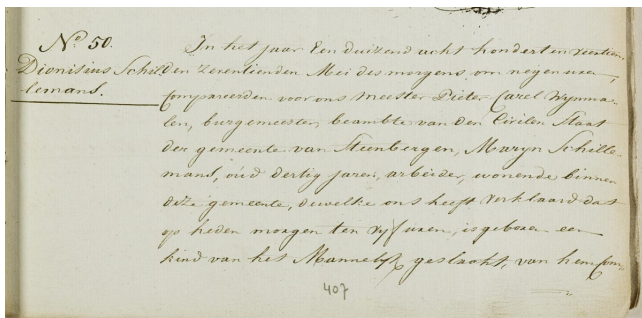 No. 50.
Dionisius Schil
lemans.
In het jaar Een duizend acht honderd en veertien
den Zeventienden Mei des morgens, om negen uren,
Compareerden voor ons Meester Pieter Carel Wijnma-
len, burgemeester, beambte van den Civilen Staat
der gemeente van Steenbergen, Maryn Schille-
mans, oud dertig jaren, arbeider, wonende binnen
deze gemeente, dewelke ons heeft verklaard dat
op heden morgen ten vijf uren, is geboren een
kind van het Mannelijk geslacht, van hem Com-
407